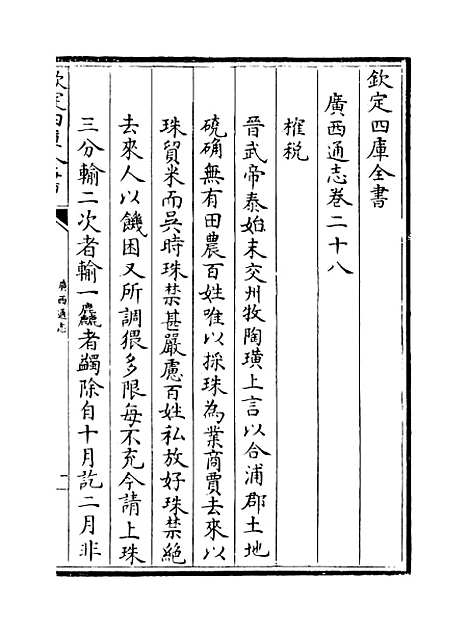 欽定四庫全書
廣西通志卷二十八
榷稅
晉武帝泰始末交州牧陶璜上言以合浦郡土地
磽确無有田農百姓唯以採珠為業商賈去來以
珠貿米而吳時珠禁甚嚴慮百姓私放好珠禁絕
去來人以饑困又所調猥多限每不充今請上珠
三分輸二次者輸一麤者蠲除自十月訖二月非
廣西通志
一